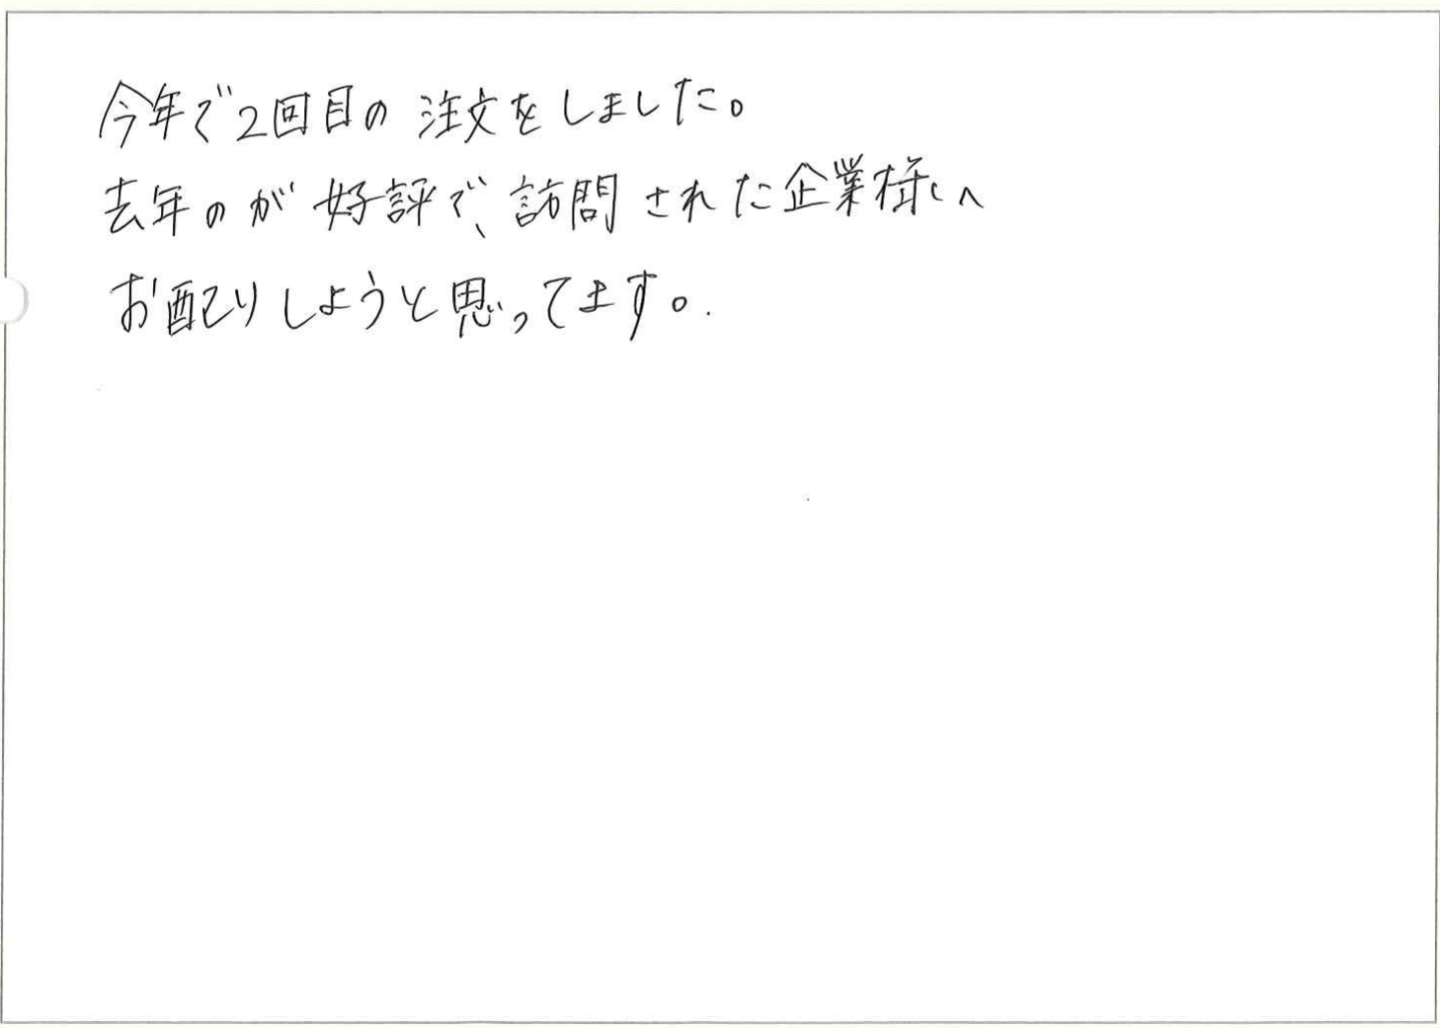 今年で2回目の注文をしました。
去年のが好評で、訪問された企業様へ
お配りしようと思ってます。